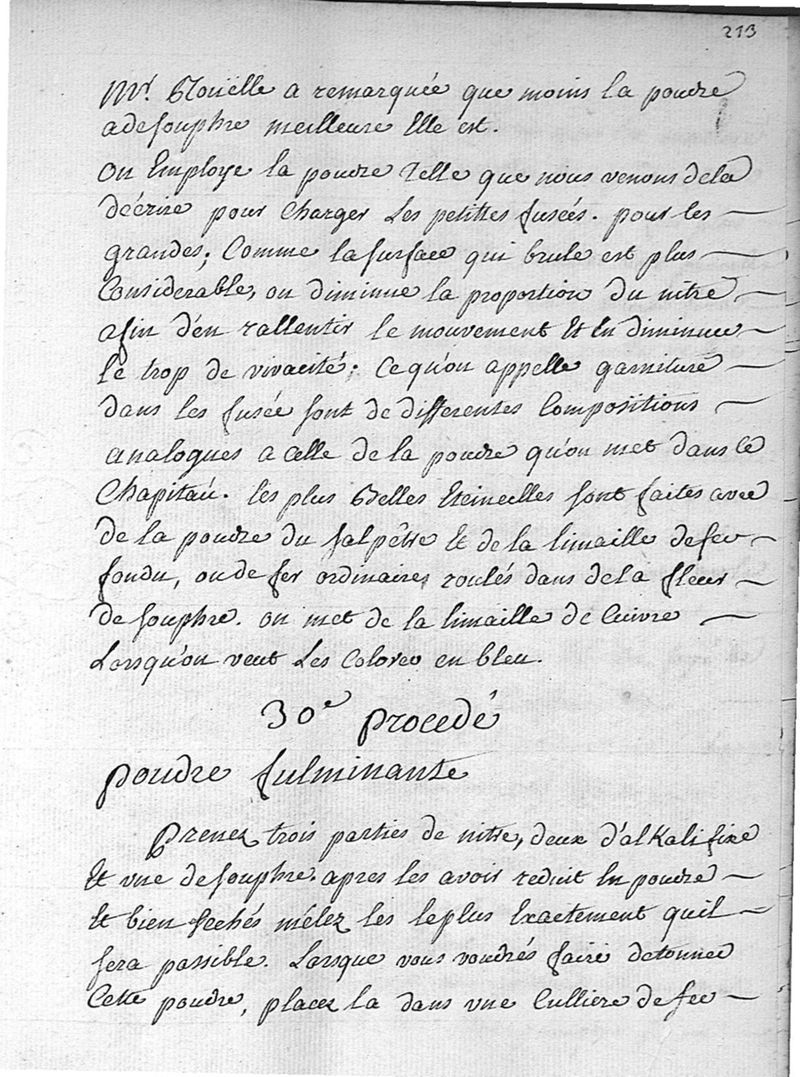 213
Mr. Roüelle a remarquée que moins la poudre
a de souphre meilleure Elle est.
On Employe la poudre Telle que nous venons de la
décrire pour Charger Les petittes fusées. pour les
grandes; Comme la surface qui brule est plus
Considerable, on diminue la proportion du nitre
afin d'en rallentir le mouvement Et En diminuer
le trop de vivacité; Ce qu'on appelle garniture
dans les fusée sont de differentes Compositions
analogues a Celle de la poudre qu'on met dans le
Chapitau. les plus Belles Etincelles sont faites avec
de la poudre du salpêtre Et de la limaille de fer
fondu, ou de fer ordinaires roulés dans de la fleur
de souphre. on met de la limaille de Cuivre
Lorsqu'on veut Les Colorer en bleu.
30e procedé
poudre fulminante
Prenez trois parties de nitre, deux d'alkali fixe
Et une de souphre. apres les avoir reduit En poudre
Et bien sechés mêlez les le plus Exactement quil
sera possible. Lorsque vous voudrés faire detonner
Cette poudre, placez la dans une Culliere de fer